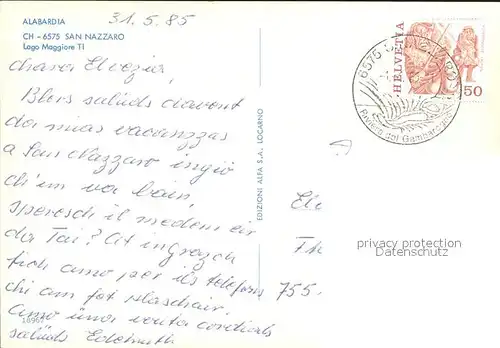 ALABARDIA
CH - 6575 SAN NAZZARO
Lago Maggiore TI
31.5.85
chara Elvezia,
Blers salüds davent
da mias vacanzas
a San Nazzaro ingio
ch'im va bain,
speresch il medem eir
da Tai? At ingrazch
fich amo per ils telefons
chi am fat plaschair.
Amo üna vouta cordials
salüds Edelmuth
18965
EDIZIONI ALFA S.A. LOCARNO
HELVETIA
50
6575
Riviera del Gambarogno
755
privacy protection
Datenschutz